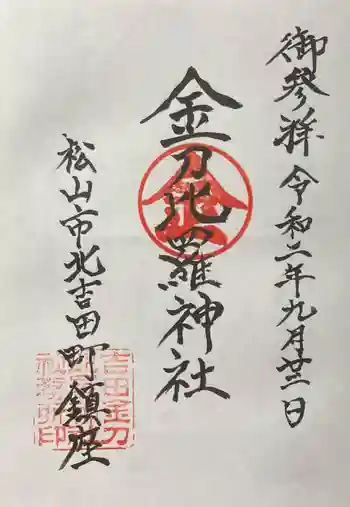 御参拝 令和二年九月廿二日
金刀比羅神社
松山市北吉田町鎮座
吉田金刀